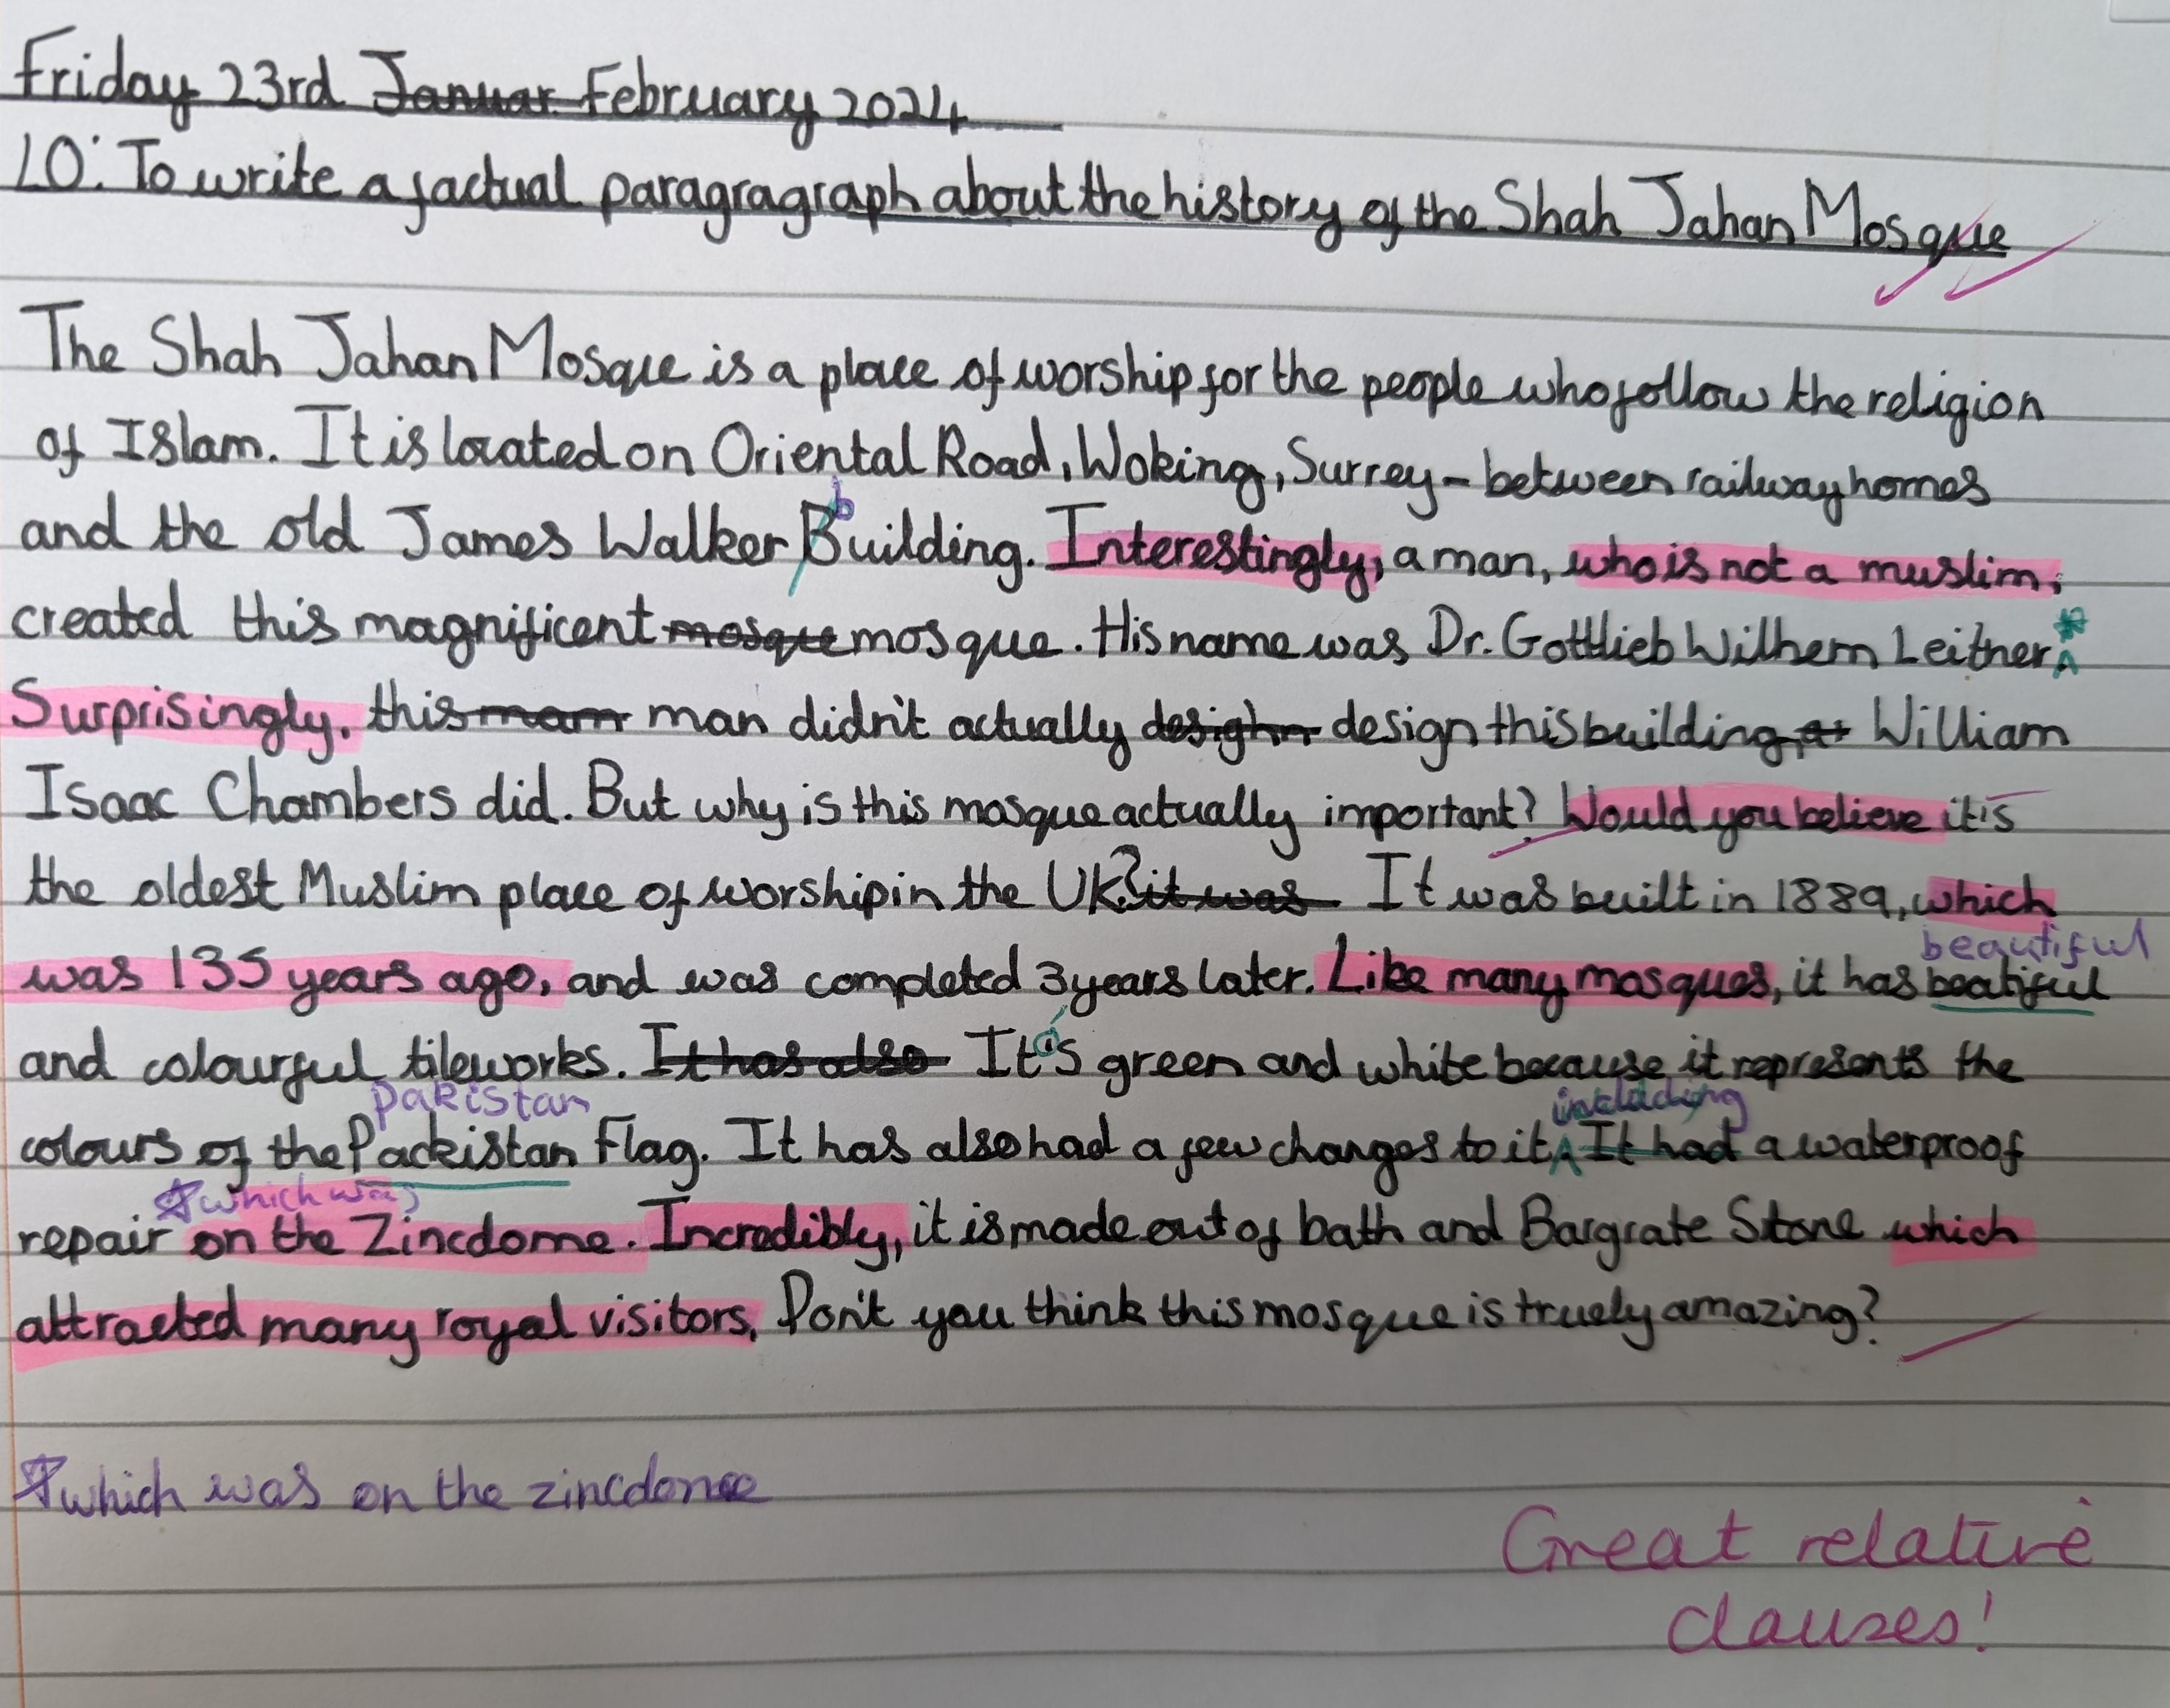 Friday 23rd Januar February 2024
LO: To write a factual paragragraph about the history of the Shah Jahan Mosque
The Shah Jahan Mosque is a place of worship for the people who follow the religion
of Islam. It is located on Oriental Road, Woking, Surrey - between railway homes
b
and the old James Walker Building. Interestingly, a man, who is not a muslim,
created this magnificent mosque mosque. His name was Dr. Gottlieb Wilhem Leitner.
Surprisingly, this mam man didn't actually desighn design this building, William
Isaac Chambers did. But why is this mosque actually important? Would you believe it's
the oldest Muslim place of worship in the UK? it was It was built in 1889, which
beautiful
was 135 years ago, and was completed 3 years later. Like many mosques, it has beatiful
and colourful tileworks. It has also It's green and white because it represents the
Pakistan including
colours of the Packistan Flag. It has also had a few changes to it. It had a waterproof
☆which was
repair on the Zincdome. Incredibly, it is made out of bath and Bargrate Stone which
attracted many royal visitors. Don't you think this mosque is truely amazing?
☆which was on the zincdome
Great relative
clauses!